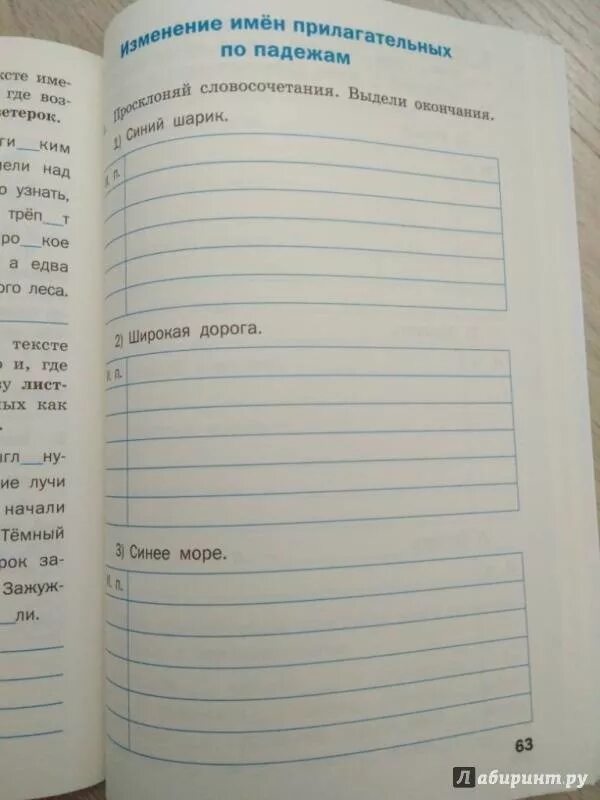 ксте име-
где воз-
етерок.
ги__ким
ели над
о узнать,
трёп__т
ро__кое
а едва
ого леса.
тексте
о и, где
ву лист-
ных как
гл__ну-
ие лучи
начали
Тёмный
рок за-
Зажуж-
__ли.
Изменение имён прилагательных
по падежам
Просклоняй словосочетания. Выдели окончания.
1) Синий шарик.
И. п.
2) Широкая дорога.
И. п.
3) Синее море.
И. п.
63
Лабиринт.ру